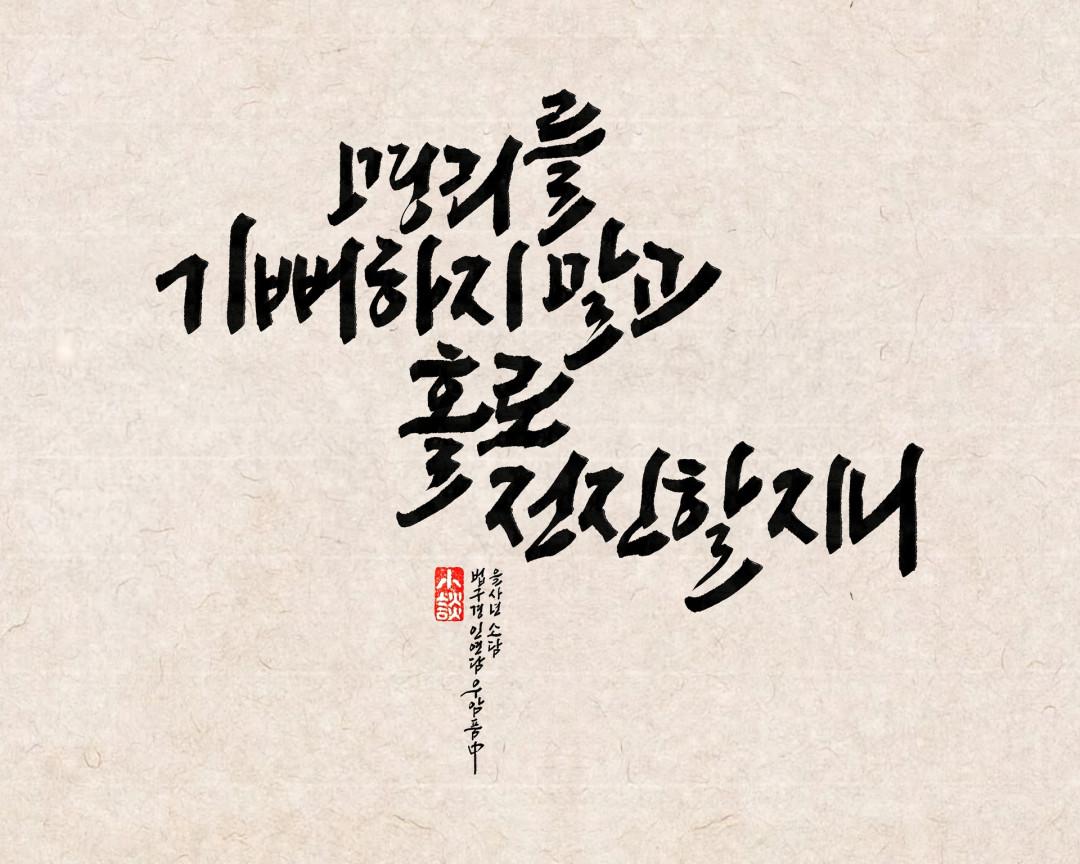 명리를
기뻐하지 말고
홀로
전진할지니
을사년 소담
법구경 인연담 우암품中
小談